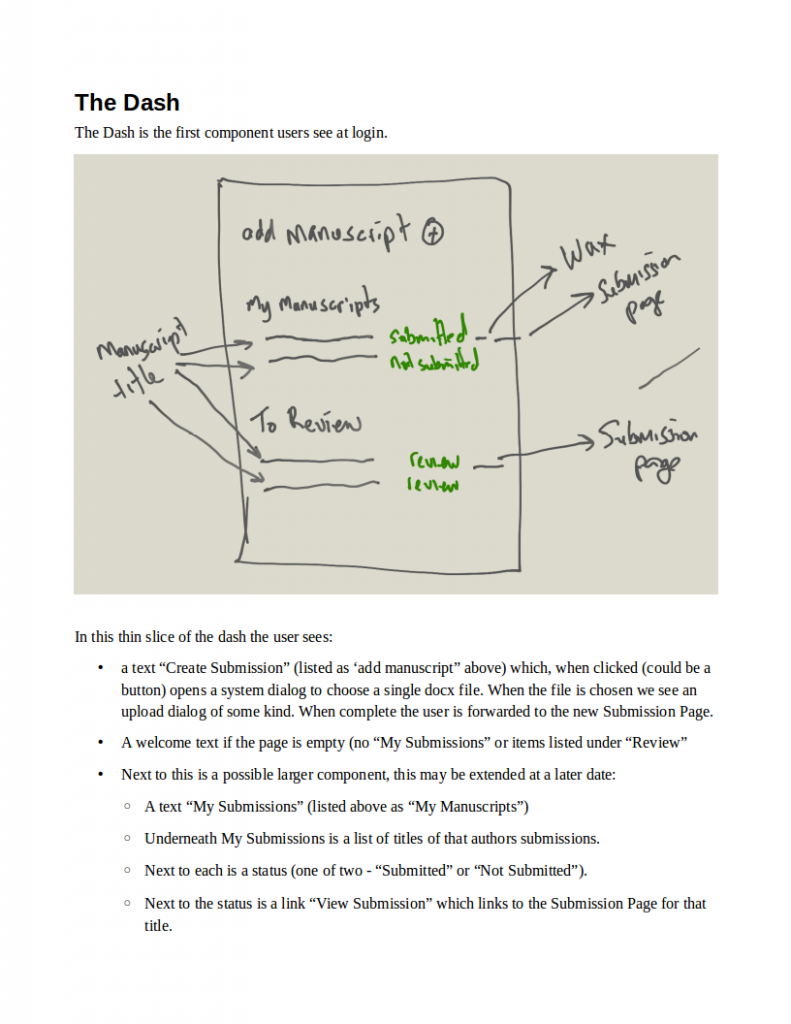 The Dash
The Dash is the first component users see at login.
add Manuscript +
My Manuscripts
submitted
not submitted
Manuscript
title
Wax
Submission
page
To Review
review
review
Submission
page
In this thin slice of the dash the user sees:
• a text “Create Submission” (listed as ‘add manuscript” above) which, when clicked (could be a
button) opens a system dialog to choose a single docx file. When the file is chosen we see an
upload dialog of some kind. When complete the user is forwarded to the new Submission Page.
• A welcome text if the page is empty (no “My Submissions” or items listed under “Review”
• Next to this is a possible larger component, this may be extended at a later date:
◦ A text “My Submissions” (listed above as “My Manuscripts”)
◦ Underneath My Submissions is a list of titles of that authors submissions.
◦ Next to each is a status (one of two - “Submitted” or “Not Submitted”).
◦ Next to the status is a link “View Submission” which links to the Submission Page for that
title.